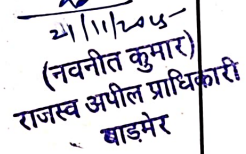 21/11/2025
(नवनीत कुमार)
राजस्व अपील प्राधिकारी
बाड़मेर